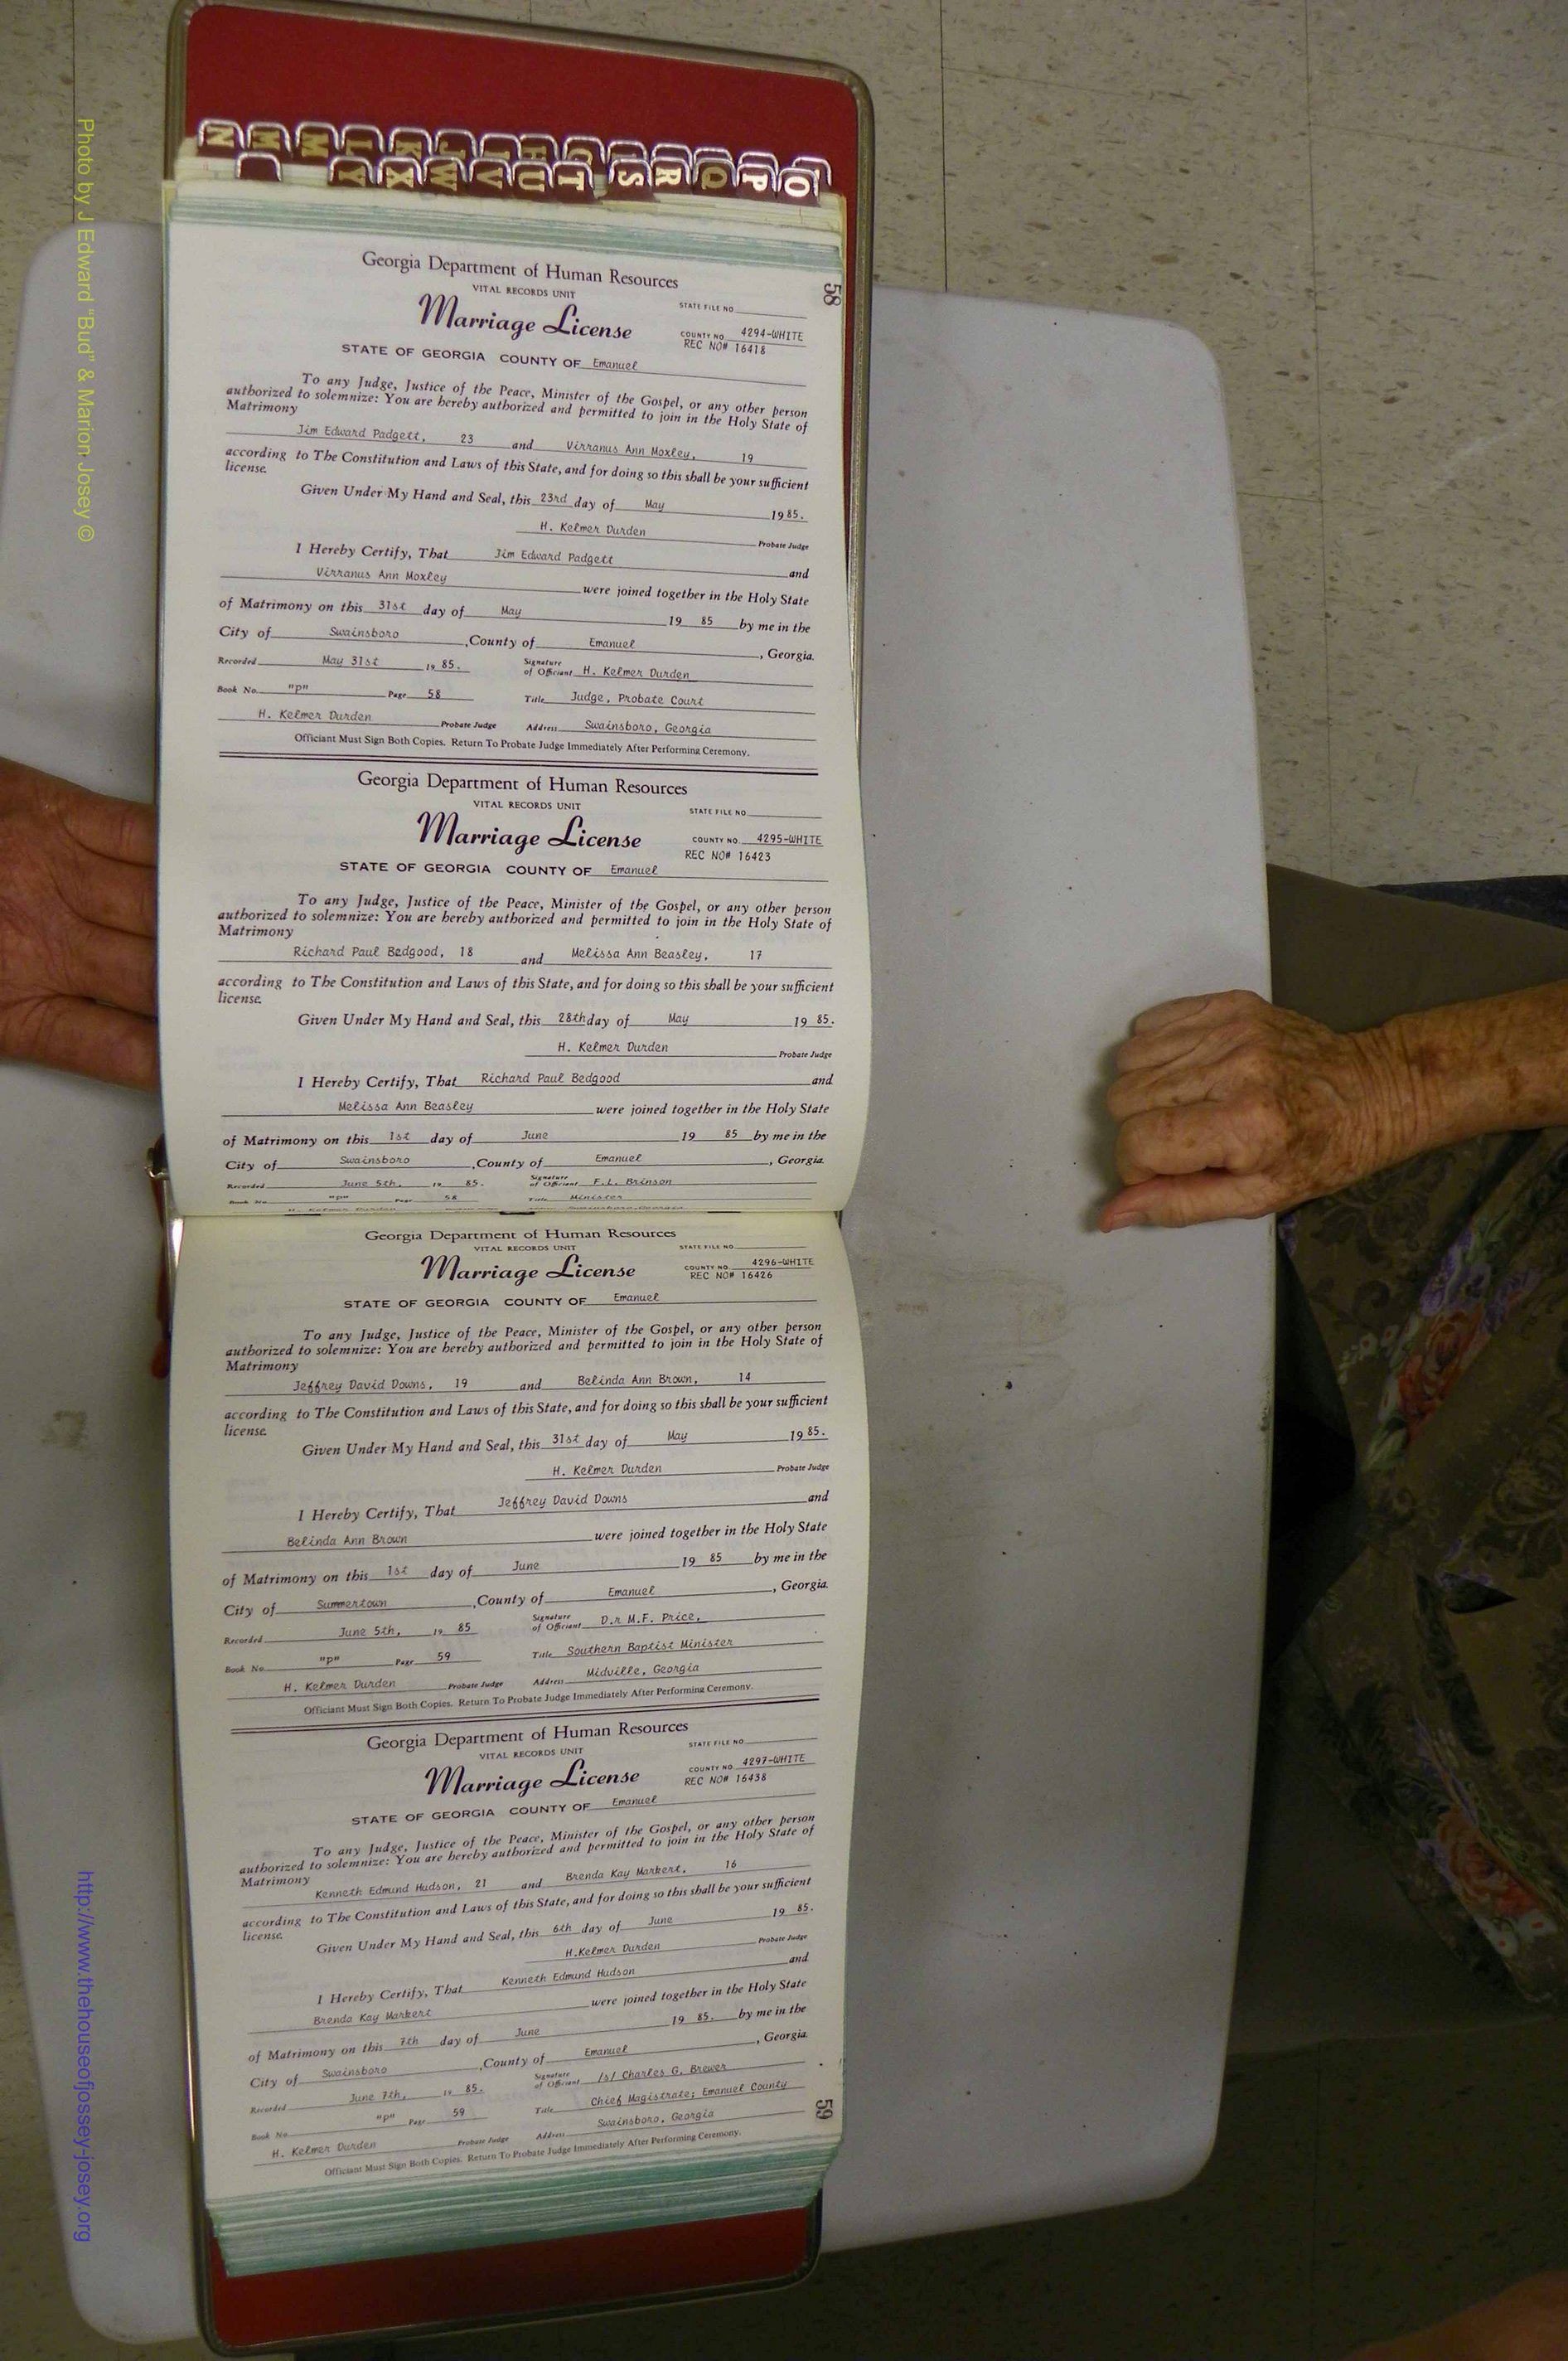 Photo by J Edward "Bud" & Marion Josey ©
http://www.thehouseofjossey-josey.org
N M M L K J I H G
Y X W V U T S R Q P O
58
Georgia Department of Human Resources
VITAL RECORDS UNIT
STATE FILE NO.
Marriage License
COUNTY NO. 4294-WHITE
REC NO# 16418
STATE OF GEORGIA COUNTY OF Emanuel
To any Judge, Justice of the Peace, Minister of the Gospel, or any other person
authorized to solemnize: You are hereby authorized and permitted to join in the Holy State of
Matrimony
Jim Edward Padgett, 23 and Virranus Ann Moxley, 19
according to The Constitution and Laws of this State, and for doing so this shall be your sufficient
license.
Given Under My Hand and Seal, this 23rd day of May 1985.
H. Kelmer Durden Probate Judge
I Hereby Certify, That Jim Edward Padgett and
Virranus Ann Moxley were joined together in the Holy State
of Matrimony on this 31st day of May 19 85 by me in the
City of Swainsboro, County of Emanuel, Georgia.
Recorded May 31st 19 85. Signature of Officiant H. Kelmer Durden
Book No. "p" Page 58 Title Judge, Probate Court
H. Kelmer Durden Probate Judge Address Swainsboro, Georgia
Officiant Must Sign Both Copies. Return To Probate Judge Immediately After Performing Ceremony.
Georgia Department of Human Resources
VITAL RECORDS UNIT
STATE FILE NO.
Marriage License
COUNTY NO. 4295-WHITE
REC NO# 16423
STATE OF GEORGIA COUNTY OF Emanuel
To any Judge, Justice of the Peace, Minister of the Gospel, or any other person
authorized to solemnize: You are hereby authorized and permitted to join in the Holy State of
Matrimony
Richard Paul Bedgood, 18 and Melissa Ann Beasley, 17
according to The Constitution and Laws of this State, and for doing so this shall be your sufficient
license.
Given Under My Hand and Seal, this 28th day of May 19 85.
H. Kelmer Durden Probate Judge
I Hereby Certify, That Richard Paul Bedgood and
Melissa Ann Beasley were joined together in the Holy State
of Matrimony on this 1st day of June 19 85 by me in the
City of Swainsboro, County of Emanuel, Georgia.
Recorded June 5th, 19 85. Signature of Officiant F.L. Brinson
Book No. "p" Page 58 Title Minister
H. Kelmer Durden Swainsboro, Georgia
Georgia Department of Human Resources
VITAL RECORDS UNIT
STATE FILE NO.
Marriage License
COUNTY NO. 4296-WHITE
REC NO# 16426
STATE OF GEORGIA COUNTY OF Emanuel
To any Judge, Justice of the Peace, Minister of the Gospel, or any other person
authorized to solemnize: You are hereby authorized and permitted to join in the Holy State of
Matrimony
Jeffrey David Downs, 19 and Belinda Ann Brown, 14
according to The Constitution and Laws of this State, and for doing so this shall be your sufficient
license.
Given Under My Hand and Seal, this 31st day of May 19 85.
H. Kelmer Durden Probate Judge
I Hereby Certify, That Jeffrey David Downs and
Belinda Ann Brown were joined together in the Holy State
of Matrimony on this 1st day of June 19 85 by me in the
City of Summertown, County of Emanuel, Georgia.
Recorded June 5th, 19 85 Signature of Officiant D.r M.F. Price,
Book No. "p" Page 59 Title Southern Baptist Minister
H. Kelmer Durden Probate Judge Address Midville, Georgia
Officiant Must Sign Both Copies. Return To Probate Judge Immediately After Performing Ceremony.
Georgia Department of Human Resources
VITAL RECORDS UNIT
STATE FILE NO.
Marriage License
COUNTY NO. 4297-WHITE
REC NO# 16438
STATE OF GEORGIA COUNTY OF Emanuel
To any Judge, Justice of the Peace, Minister of the Gospel, or any other person
authorized to solemnize: You are hereby authorized and permitted to join in the Holy State of
Matrimony
Kenneth Edmund Hudson, 21 and Brenda Kay Markert, 16
according to The Constitution and Laws of this State, and for doing so this shall be your sufficient
license.
Given Under My Hand and Seal, this 6th day of June 19 85.
H.Kelmer Durden Probate Judge
I Hereby Certify, That Kenneth Edmund Hudson and
Brenda Kay Markert were joined together in the Holy State
of Matrimony on this 7th day of June 19 85. by me in the
City of Swainsboro, County of Emanuel, Georgia.
Recorded June 7th, 19 85. Signature of Officiant /s/ Charles G. Brewer
Book No. "p" Page 59 Title Chief Magistrate; Emanuel County
H. Kelmer Durden Probate Judge Address Swainsboro, Georgia
Officiant Must Sign Both Copies. Return To Probate Judge Immediately After Performing Ceremony.
59